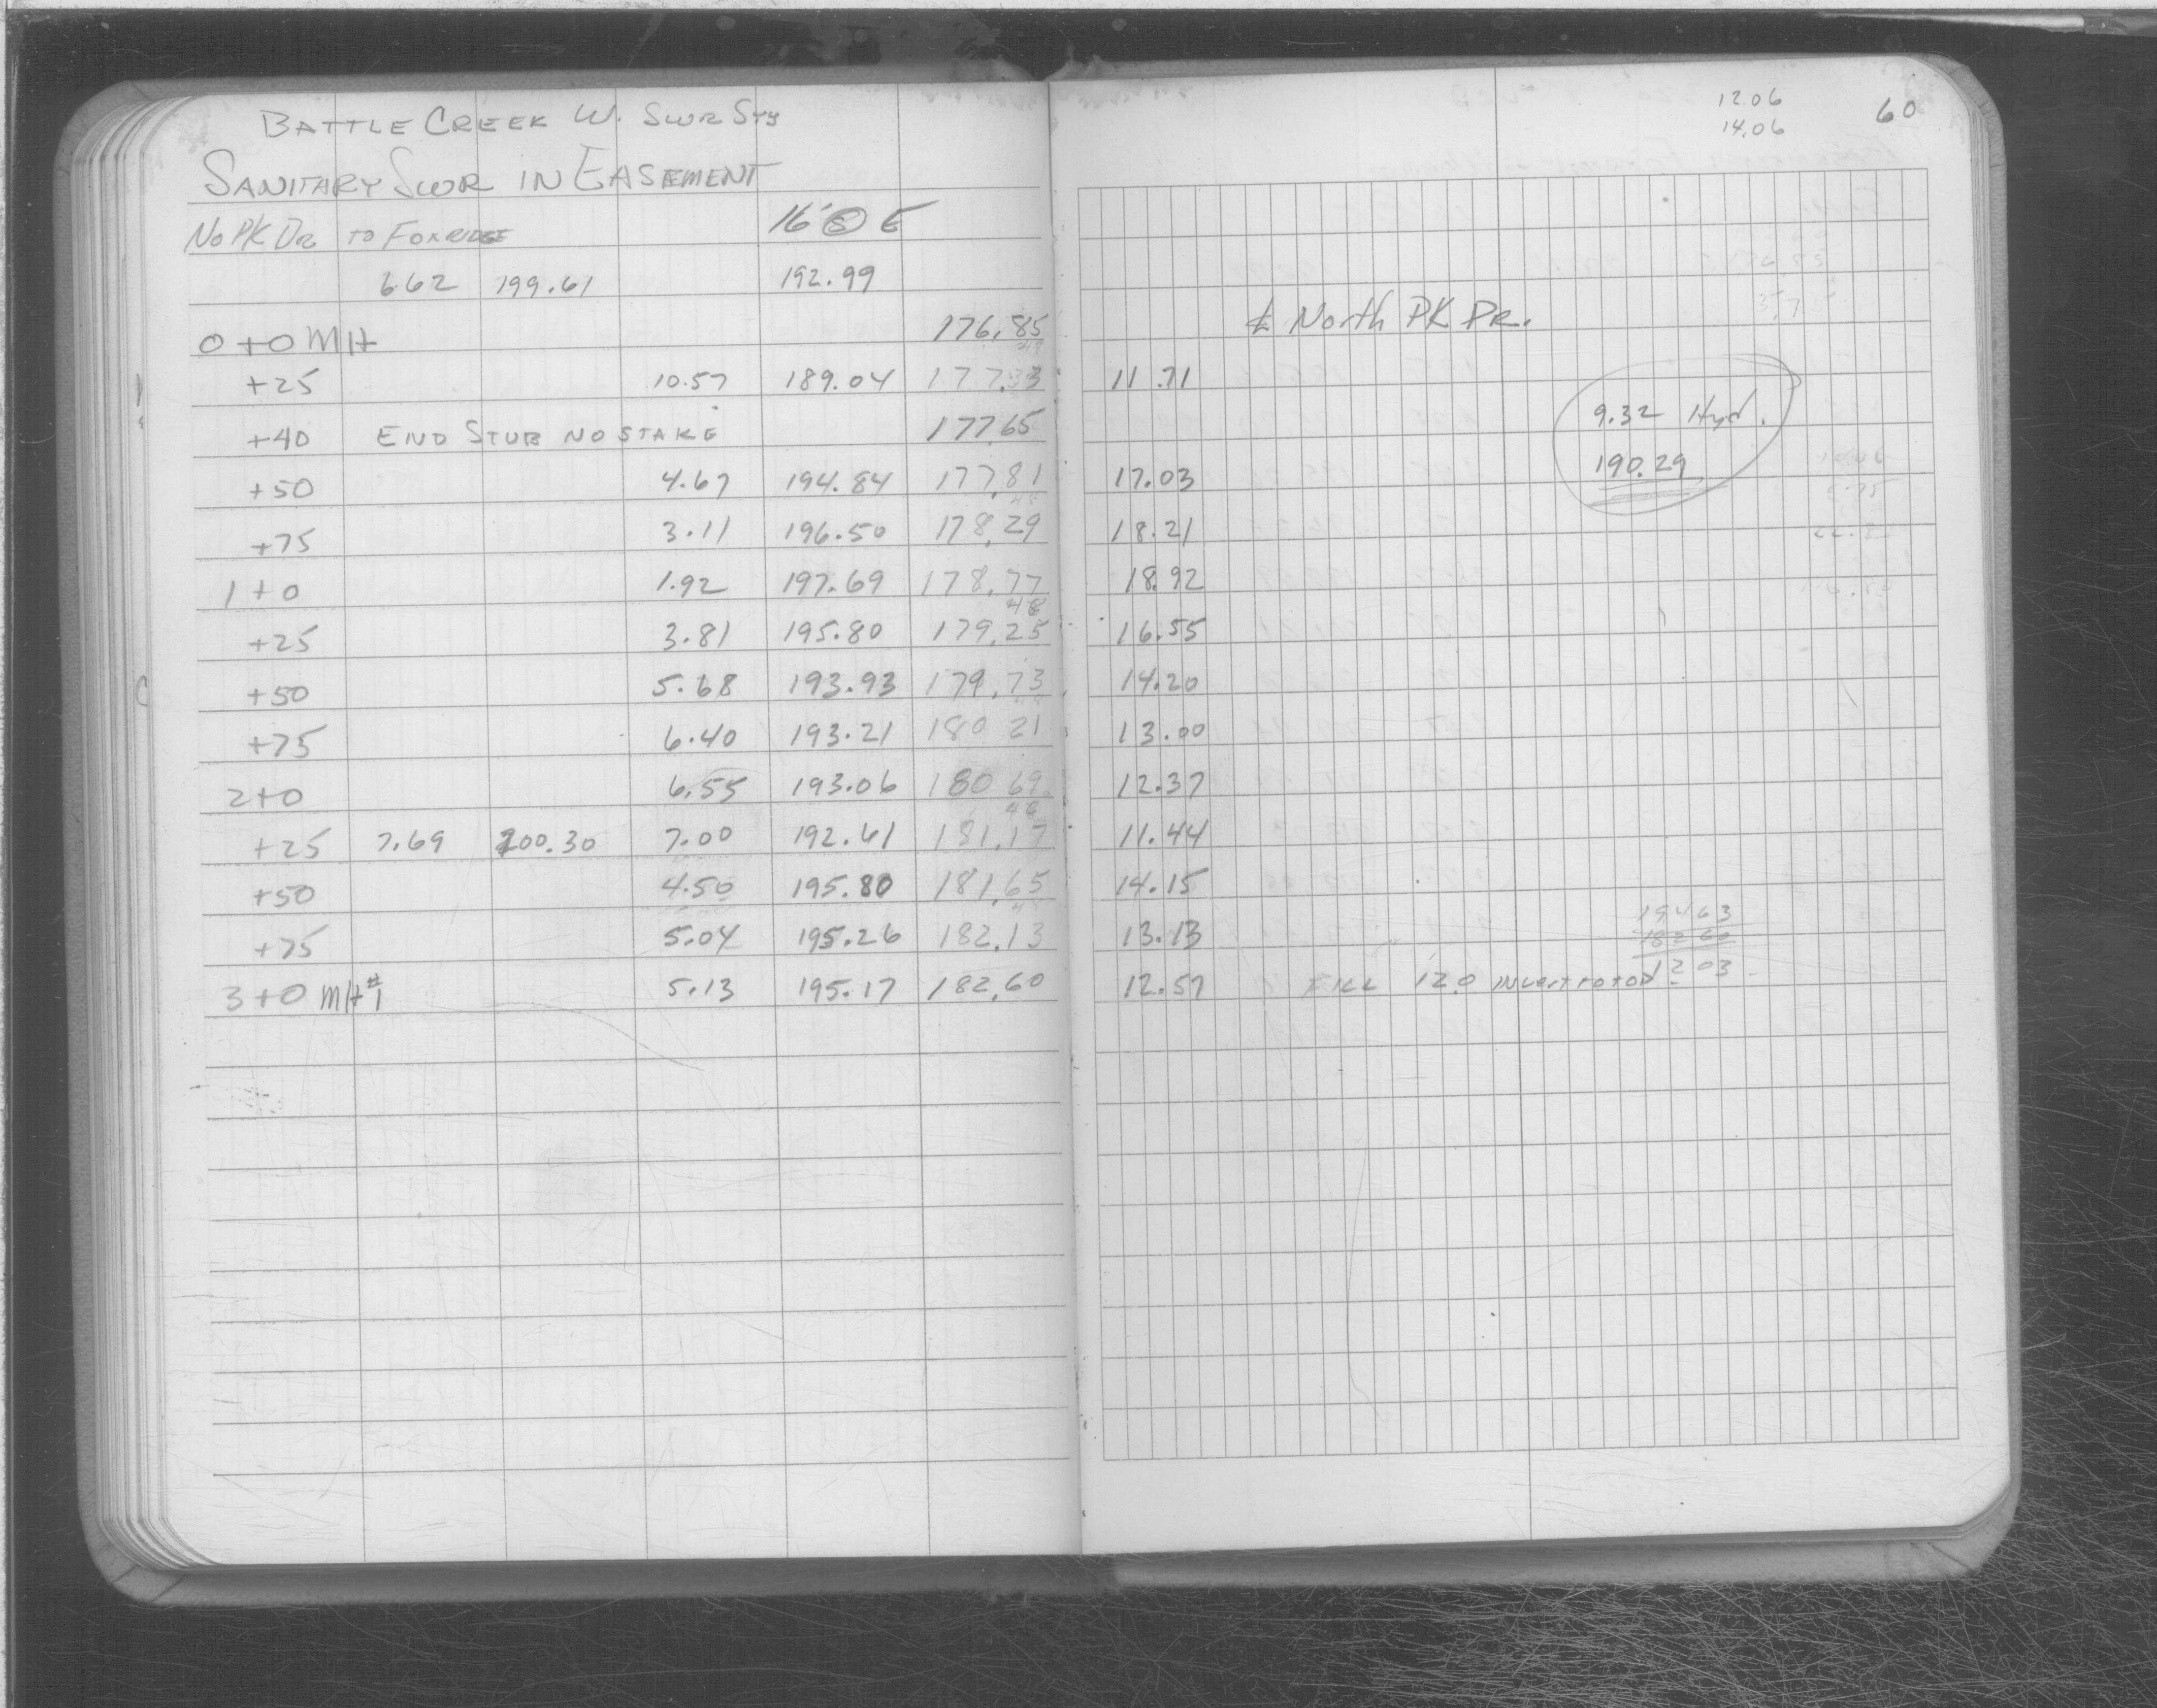 BATTLE CREEK W. SWR SYS
SANITARY SWR IN EASEMENT
No PK DR TO FOXRIDGE 16' Ⓢ E
6.62 199.61 192.99
0+0 MH 176.85
+25 10.57 189.04 177.33
+40 END STUB NO STAKE 177.65
+50 4.67 194.84 177.81
+75 3.11 196.50 178.29
1+0 1.92 197.69 178.77
48
+25 3.81 195.80 179.25
+50 5.68 193.93 179.73
+75 6.40 193.21 180 21
2+0 6.55 193.06 180 69
48
+25 7.69 200.30 7.00 192.61 181.17
+50 4.50 195.80 181.65
+75 5.04 195.26 182.13
3+0 MH #1 5.13 195.17 182.60
12.06 60
14.06
℄ North PK DR.
11.71
9.32 Hyd.
190.29
17.03
18.21
18.92
16.55
14.20
13.00
12.37
11.44
14.15
194 63
182 60
13.13
12 03
12.57 FILL 12.0 INVERT TO TOP